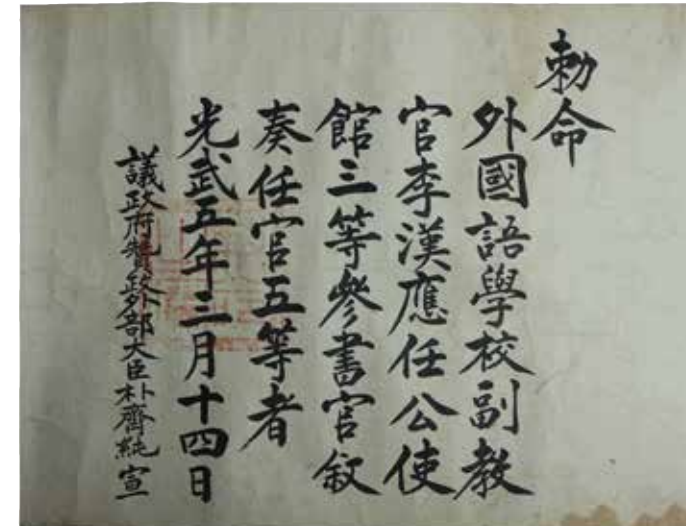 勅命
外國語學校副教
官李漢應任公使
館三等參書官敍
奏任官五等者
光武五年三月十四日
議政府贊政外部大臣朴齊純 宣